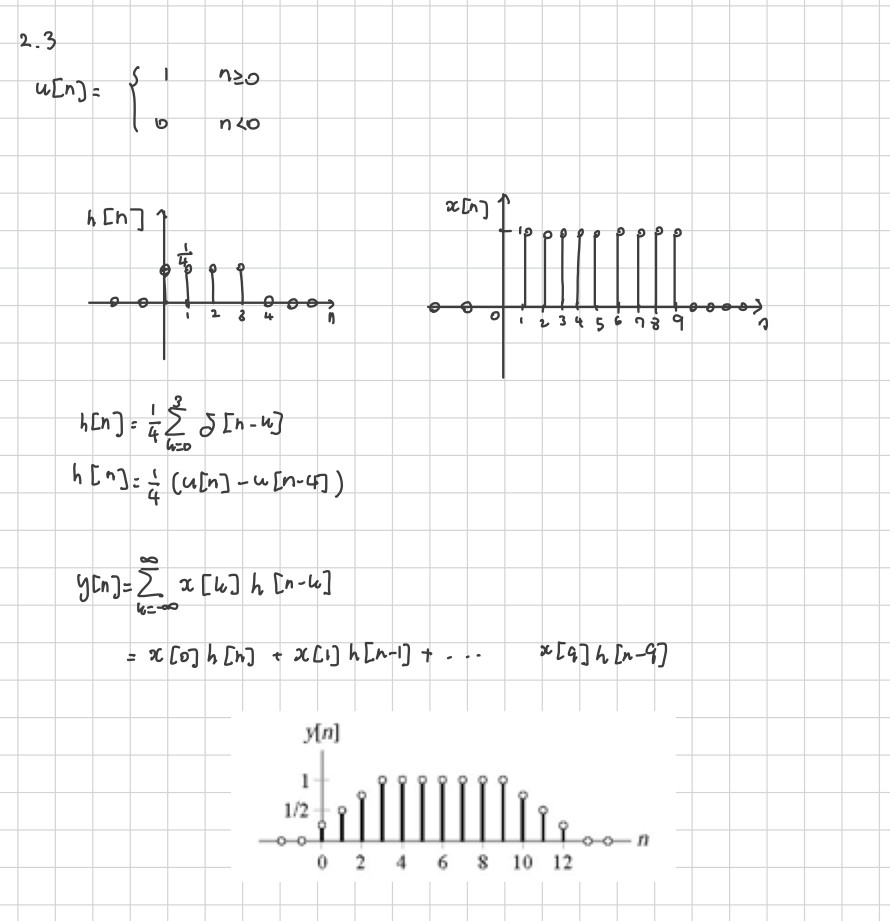 2.3
u[n]= { 1 n≥0
0 n<0
h[n]
1/4
1 2 3 4 n
x[n]
1
0 1 2 3 4 5 6 7 8 9 n
h[n]= 1/4 Σ_{k=0}^{3} δ[n-k]
h[n]= 1/4 (u[n]-u[n-4])
y[n]= Σ_{k=-∞}^{∞} x[k] h[n-k]
= x[0]h[n] + x[1]h[n-1] + ... x[9]h[n-9]
y[n]
1
1/2
n
0 2 4 6 8 10 12